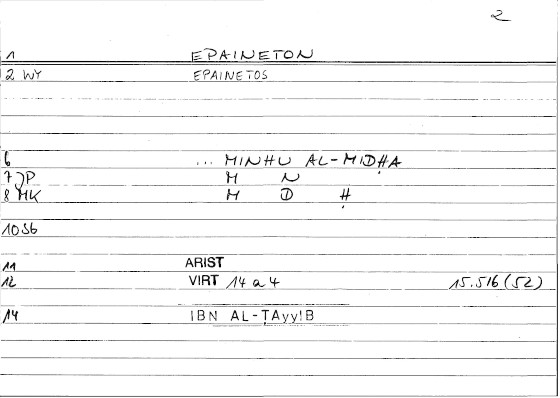 2
1 EPAINETON
2 WY EPAINETOS
6 ... MINHU AL-MIDḤA
7 JP M N
8 MK M D Ḥ
10 Sb
11 ARIST
12 VIRT 14 a 4 15.516 (52)
14 IBN AL-ṬAyyIB